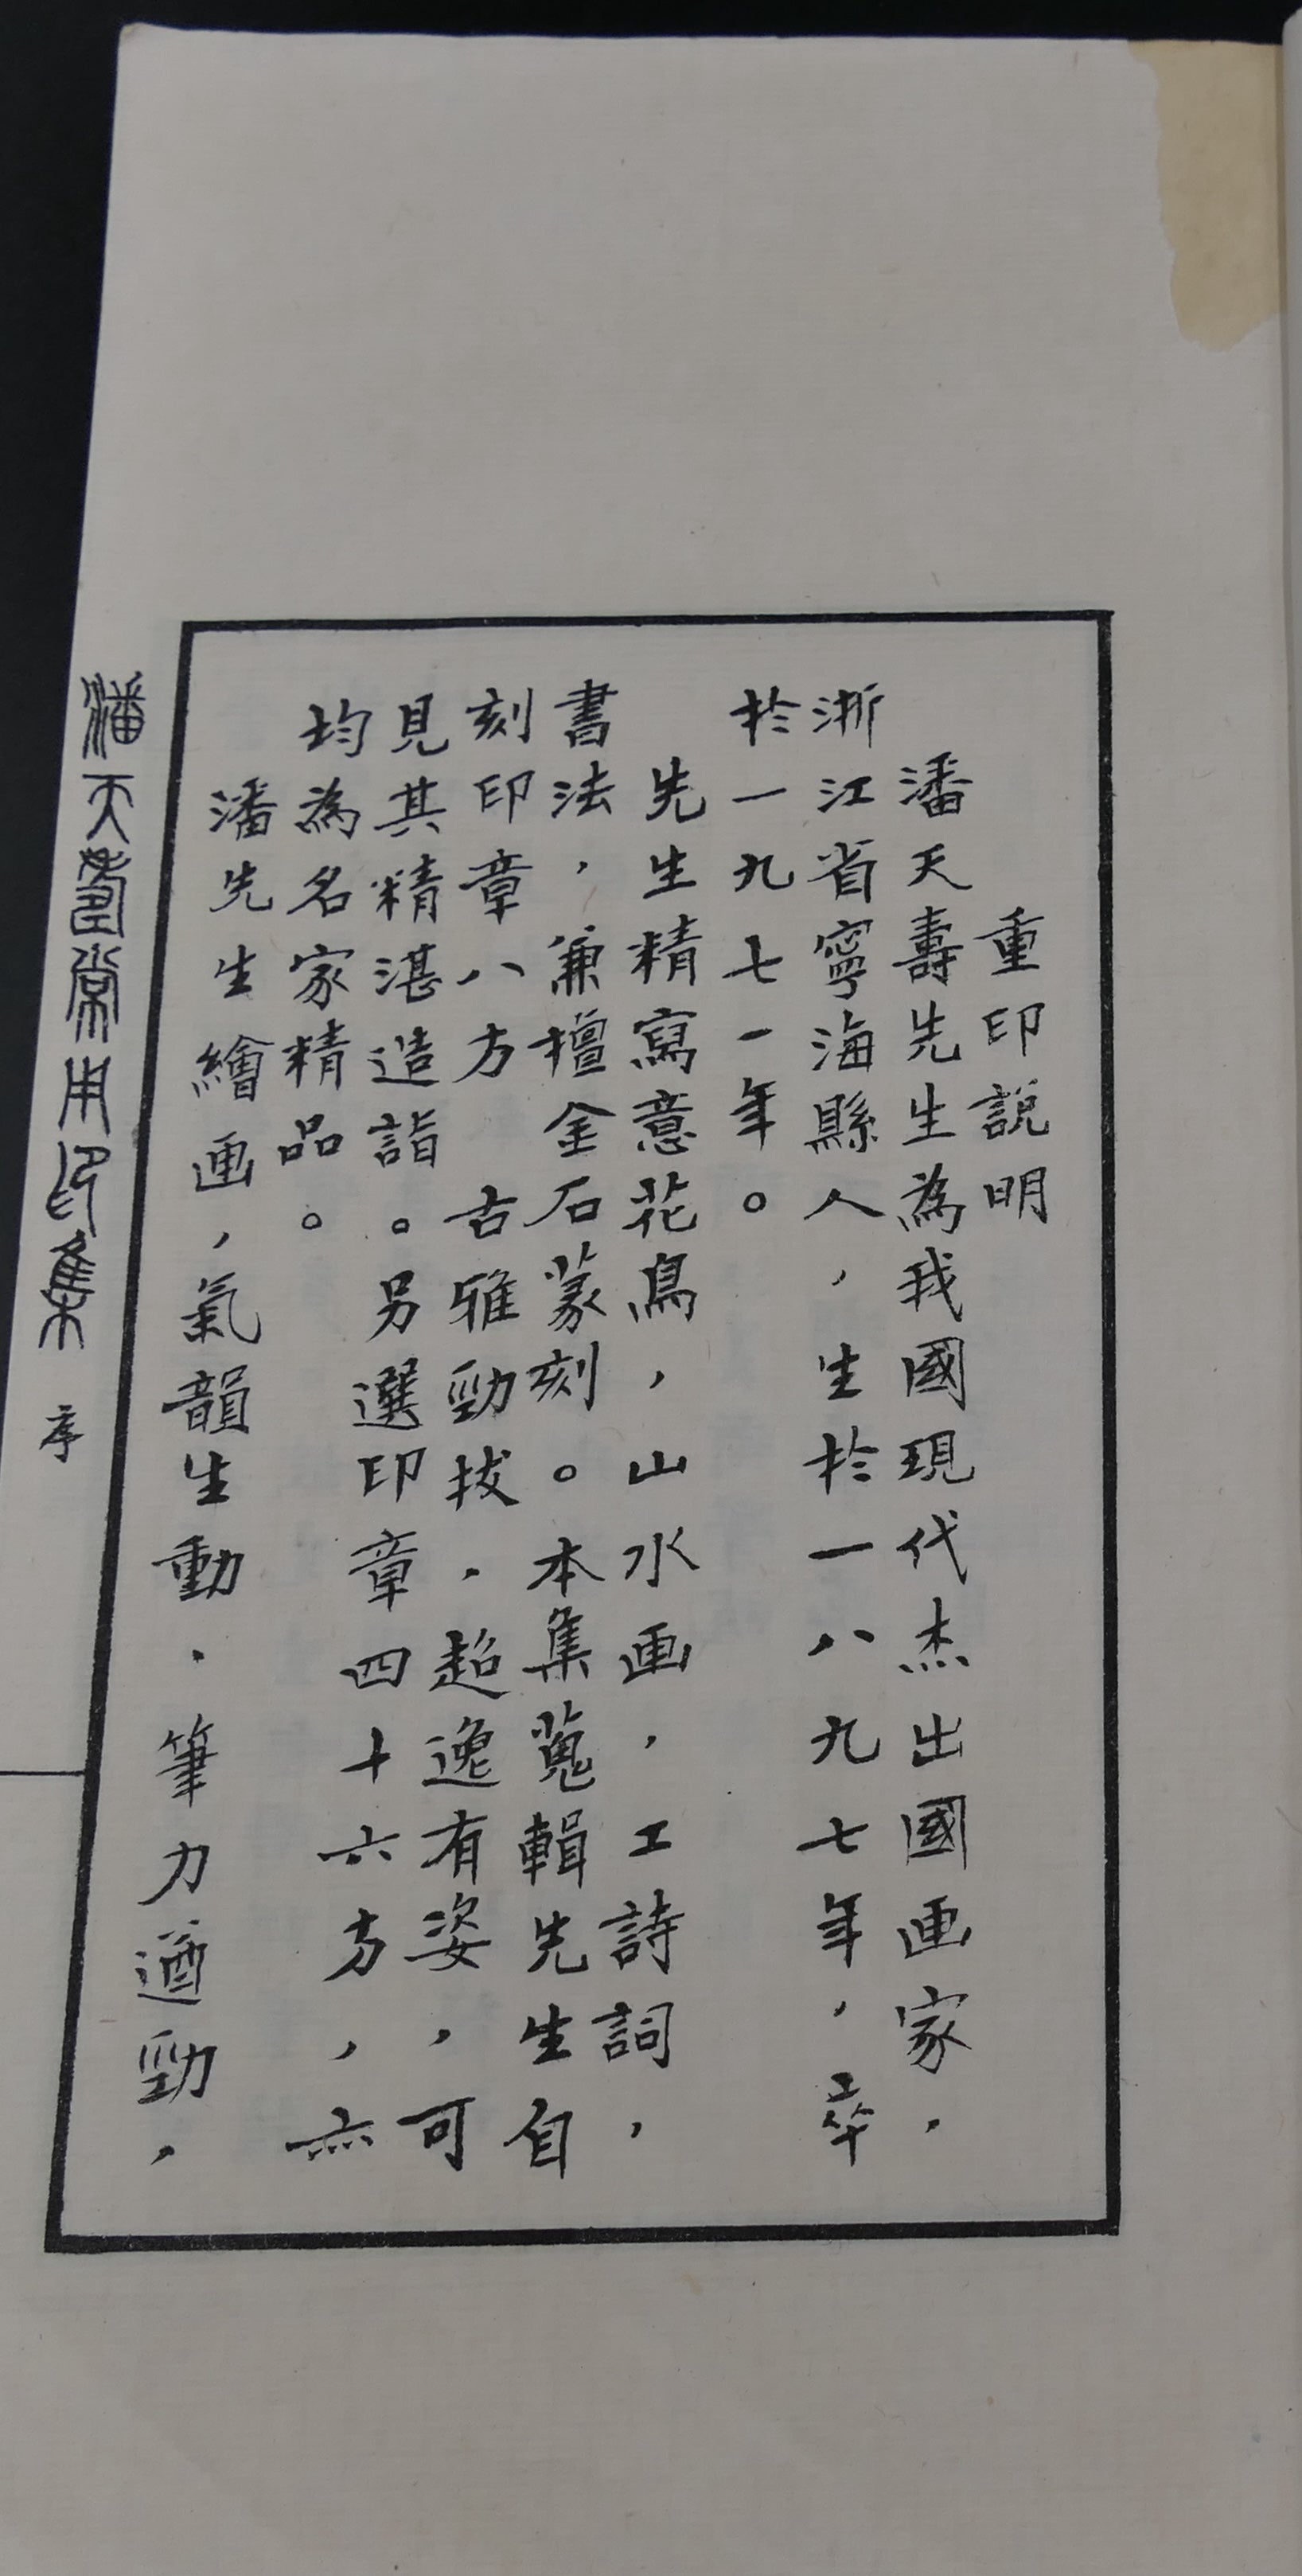 重印説明
潘天壽先生為我國現代杰出國画家，
浙江省寧海縣人，生於一八九七年，卒
於一九七一年。
先生精寫意花鳥，山水画，工詩詞，
書法，兼擅金石篆刻。本集蒐輯先生自
刻印章八方 古雅勁拔．超逸有姿，可
見其精湛造詣。另選印章四十六方，亦
均為名家精品。
潘先生繪画，氣韻生動．筆力遒勁，
潘天壽常用印集 序